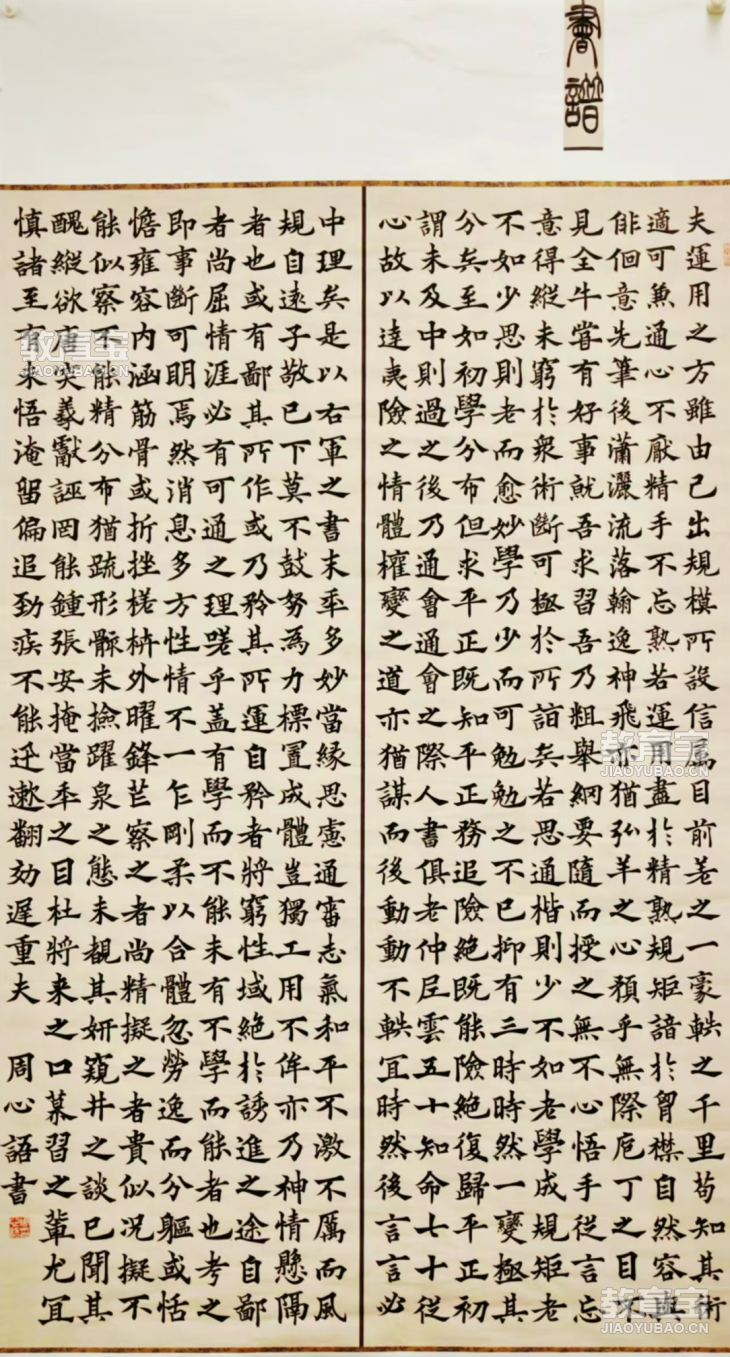 書譜
夫運用之方雖由己出規模所設信属目前差之一豪軼之千里苟知其術
適可兼通心不厭精手不忘熟若運用盡於精熟規矩諳於胷襟自然容與
俳佪意先筆後瀟灑流落翰逸神飛亦猶弘羊之心預乎無際庖丁之目不
見全牛甞有好事就吾求習吾乃粗舉綱要隨而授之無不心悟手從言忘
意得縱未窮於衆術斷可極於所詣矣若思通楷則少不如老學成規矩老
不如少思則老而愈妙學乃少而可勉勉之不已抑有三時時然一變極其
分矣至如初學分布但求平正既知平正務追險絕既能險絕復歸平正初
謂未及中則過之後乃通會通會之際人書俱老仲尼雲五十知命七十從
心故以達夷險之情體權變之道亦猶謀而後動動不軼冝時然後言言必
中理矣是以右軍之書末年多妙當緣思慮通審志氣和平不激不厲而風
規自遠子敬已下莫不鼓努為力標置成體豈獨工用不侔亦乃神情懸隔
者也或有鄙其所作或乃矜其所運自矜者將窮性域絕於誘進之途自鄙
者尚屈情涯必有可通之理嗟乎蓋有學而不能未有不學而能者也考之
即事斷可明焉然消息多方性情不一乍剛柔以合體忽勞逸而分軀或恬
憺雍容内涵筋骨或折挫槎枿外曜鋒芒察之者尚精擬之者貴似況擬不
能似察不能精分布猶疏形骸未撿躍泉之態未覩其妍窺井之談已聞其
醜縱欲唐突羲獻誣罔能鍾張安掩當年之目杜將来之口慕習之輩尤冝
慎諸至有未悟淹留偏追勁疾不能迅遬翻効遲重夫
周心語書
教育宝
JIAOYUBAO.CN
教育宝
JIAOYUBAO.CN
教育宝
JIAOYUBAO.CN
教育宝
JIAOYUBAO.CN